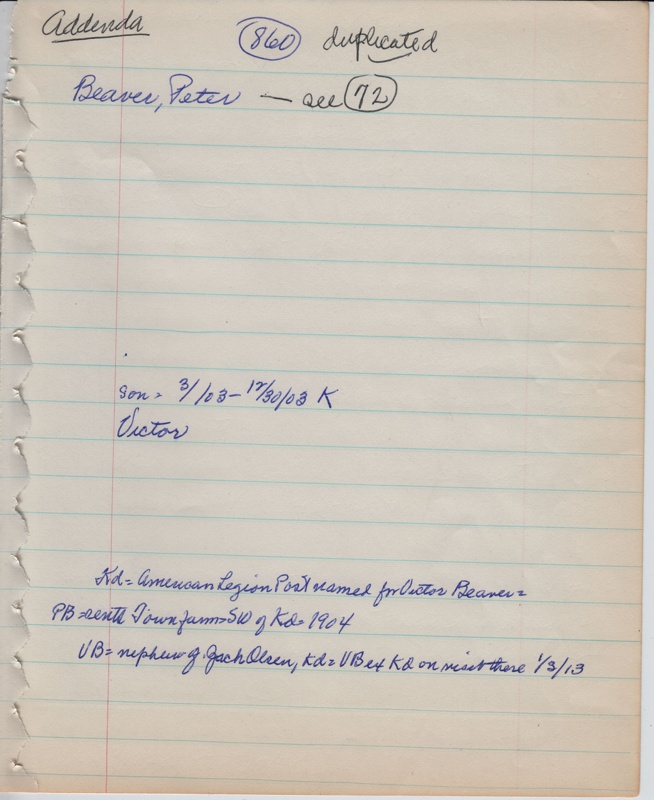 Addenda 860 duplicated
Beaver, Peter — see 72
son = 3/ /03 – 12/30/03 K
Victor
Kd = American Legion Post named for Victor Beaver =
PB = rents Town farm = SW of Kd = 1904
VB = nephew of Zach Olsen, Kd = VB ex Kd on visit there 1/3/13